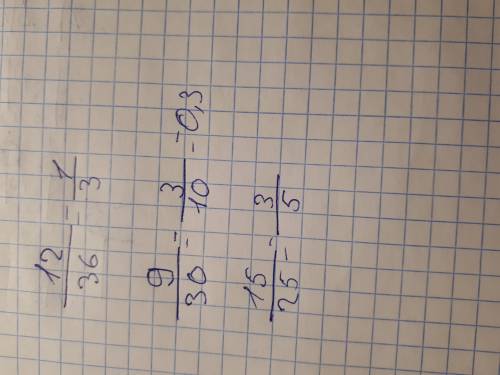 12/36 = 1/3
9/30 = 3/10 = 0,3
15/25 = 3/5